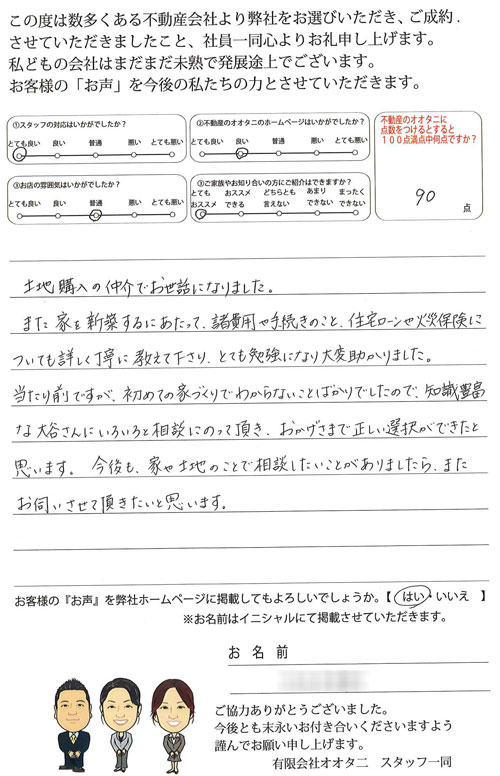 この度は数多くある不動産会社より弊社をお選びいただき、ご成約.
させていただきましたこと、社員一同心よりお礼申し上げます。
私どもの会社はまだまだ未熟で発展途上でございます。
お客様の「お声」を今後の私たちの力とさせていただきます。
①スタッフの対応はいかがでしたか？
とても良い 良い 普通 悪い とても悪い
②不動産のオオタニのホームページはいかがでしたか？
とても良い 良い 普通 悪い とても悪い
③お店の雰囲気はいかがでしたか？
とても良い 良い 普通 悪い とても悪い
③ご家族やお知り合いの方にご紹介はできますか？
とても おススメ どちらとも あまり まったく
おススメ できる 言えない できない できない
不動産のオオタニに
点数をつけるとすると
１００点満点中何点ですか？
90
点
土地購入の仲介でお世話になりました。
また家を新築するにあたって、諸費用や手続きのこと、住宅ローンや火災保険に
ついても詳しく丁寧に教えて下さり、とても勉強になり大変助かりました。
当たり前ですが、初めての家づくりでわからないことばかりでしたので、知識豊富
な大谷さんにいろいろと相談にのって頂き、おかげさまで正しい選択ができたと
思います。 今後も、家や土地のことで相談したいことがありましたら、また
お伺いさせて頂きたいと思います。
お客様の『お声』を弊社ホームページに掲載してもよろしいでしょうか。【 はい・いいえ 】
※お名前はイニシャルにて掲載させていただきます。
お 名 前
ご協力ありがとうございました。
今後とも末永いお付き合いくださいますよう
謹んでお願い申し上げます。
有限会社オオタニ スタッフ一同